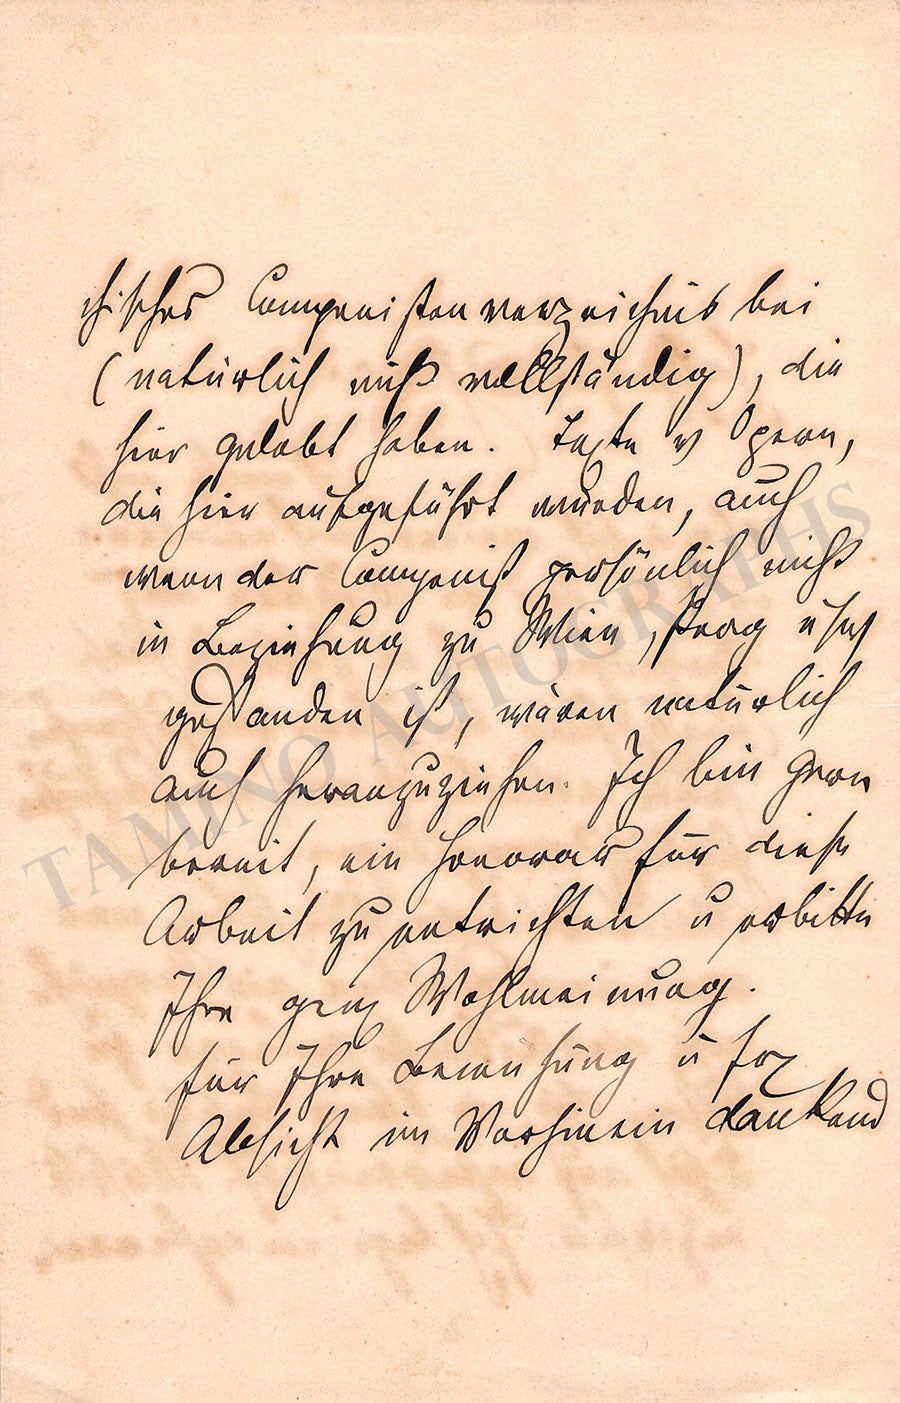 chisches Componistenverzeichnis bei
(natürlich nicht vollständig), die
hier gelebt haben. Texte v Opern,
die hier aufgeführt wurden, auch
wenn der Componist persönlich nicht
in Beziehung zu Wien, Prag usw
gestanden ist, wären natürlich
auch heranzuziehen. Ich bin gern
bereit, ein Honorar für diese
Arbeit zu entrichten u erbitte
Ihre Wohlmeinung.
für Ihre Bemühung u
Absicht im Vorhinein dankend
TAMINO AUTOGRAPHS